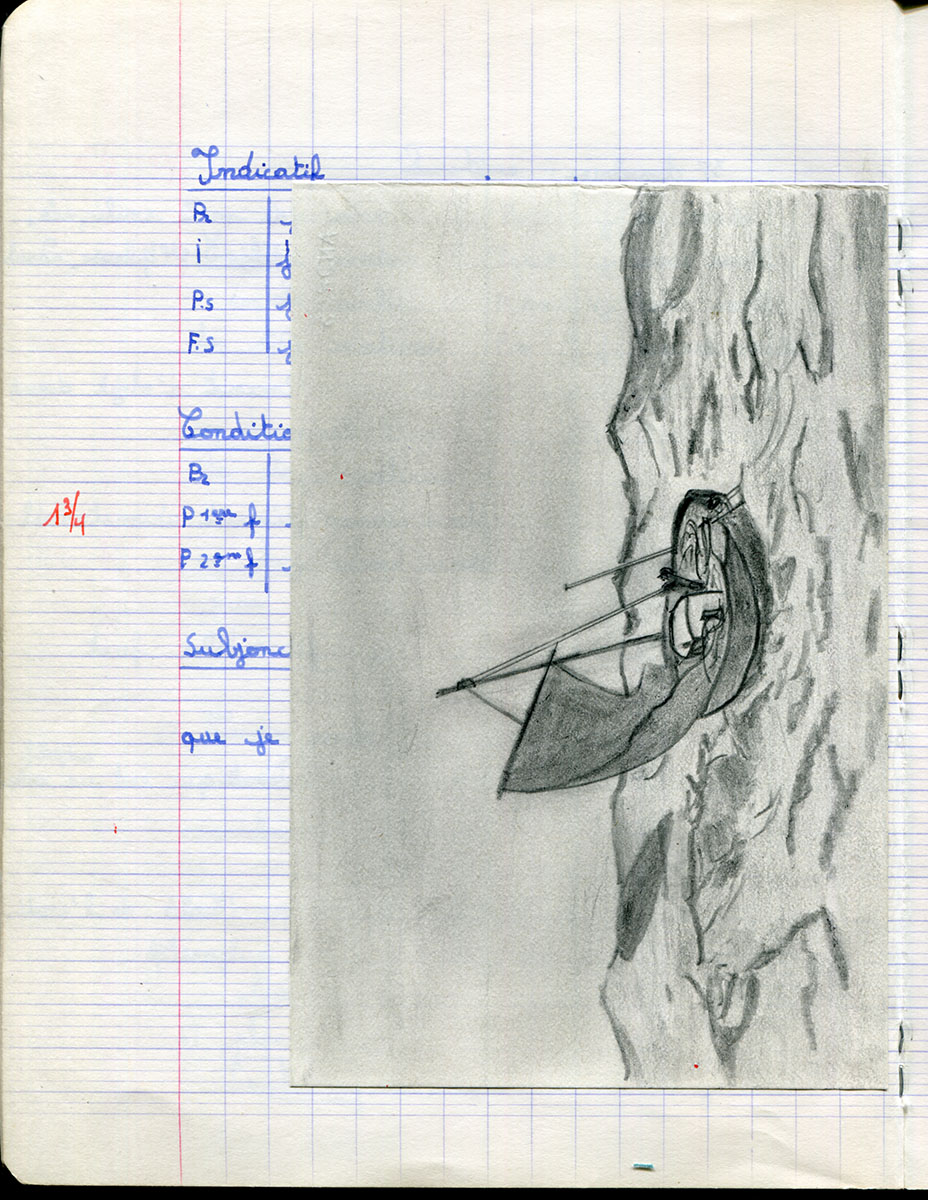 Indicatif
Pr
i
P.s
F.s
Conditio
Pr
1 3/4
P 1ère f
P 2ème f
Subjonc
que je